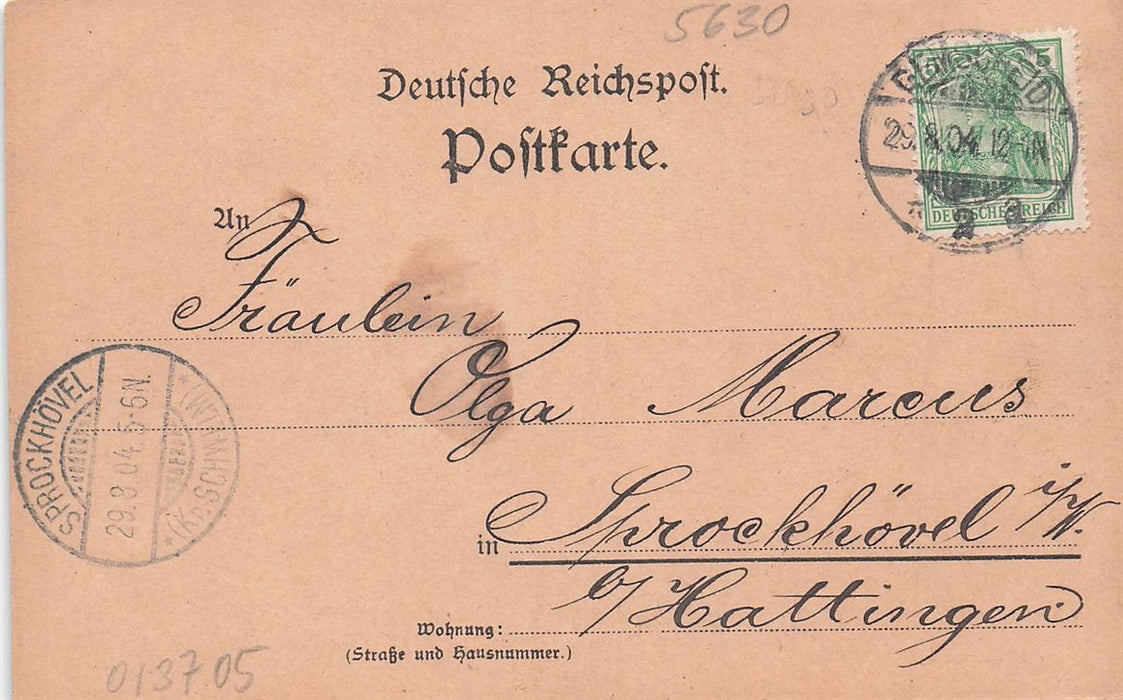 5630
Deutsche Reichspost.
Postkarte.
5 5
29.8.04.12-1N
DEUTSCHES REICH
* 2 a
An
Fräulein
Olga Marcus
in Sprockhövel i/W.
b/Hattingen
Wohnung:
(Straße und Hausnummer.)
SPROCKHÖVEL
29.8.04.5-6N.
*(Kr. SCHWELM)*
013705